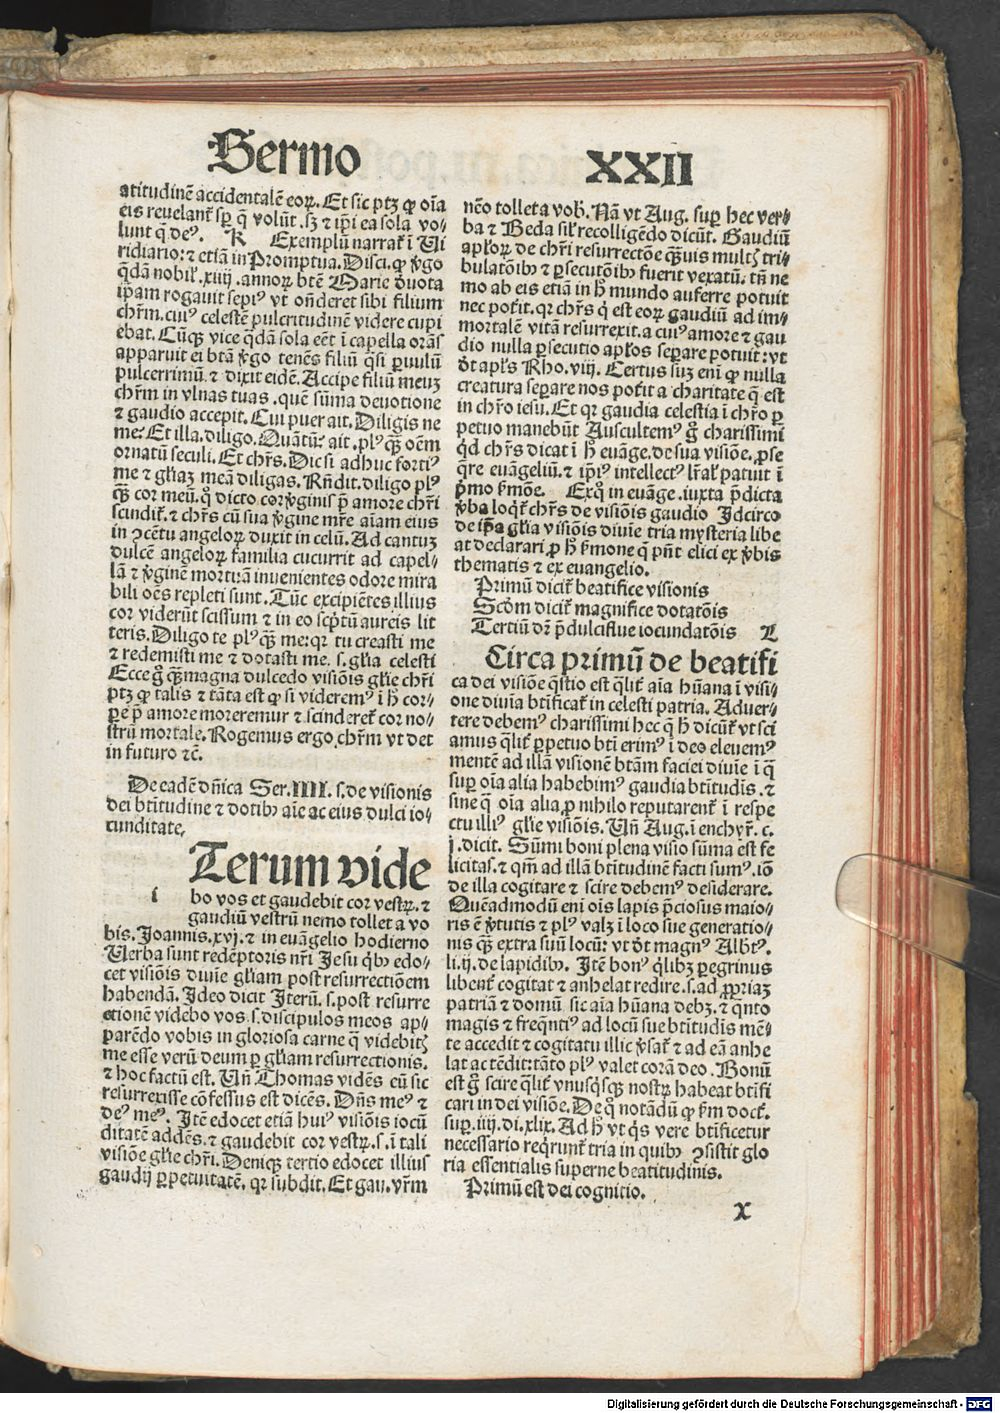 Sermo XXII
atitudinẽ accidentalẽ eoꝝ. Et sic ptꝫ ꝙ oĩa
eis revelant᷑ sꝑ q̃ volũt. sꝫ ⁊ ip̃i ea sola vo⸗
lunt q̃ deꝰ. K Exemplũ narrat᷑ ĩ Vi
ridiario: ⁊ etiã in Promptua. Disci. ꝙ v̓go
q̃dã nobil᷑ .xiiij. annoꝝ btẽ Marie d̓uota
ip̃am rogavit sepiꝰ vt on̄deret sibi filium
chr̄m. cuiꝰ celestẽ pulcritudinẽ videre cupi
ebat. Cũqꝫ vice q̃dã sola eẽt ĩ capella orãs
apparuit ei btã v̓go tenẽs filiũ q̃si ꝑvulũ
pulcerrimũ. ⁊ dixit eidẽ. Accipe filiũ meuꝫ
chr̄m in vlnas tuas. quẽ sũma devotione
⁊ gaudio accepit. Cui puer ait. Diligis ne
me? Et illa. diligo. Quãtũ? ait. plꝰ qꝫ̃ oẽm
ornatũ seculi. Et chr̃s. Dic si adhuc fortiꝰ
me ⁊ gl̓iaꝫ meã diligas. Rñdit. diligo plꝰ
qꝫ̃ cor meũ. q̊ dicto. cor v̓ginis p̃ amore chr̃i
scindit᷑. ⁊ chr̃s cũ sua v̓gine mr̃e aĩam eius
in ɔcẽtu angeloꝝ duxit in celũ. Ad cantuꝫ
dulcẽ angeloꝝ familia cucurrit ad capel⸗
lã ⁊ v̓ginẽ mortuã invenientes odore mira
bili oẽs repleti sunt. Tũc excipiẽtes illius
cor viderũt scissum ⁊ in eo scp̃tũ aureis lit
teris. Diligo te plꝰ qꝫ̃ me: qꝛ tu creasti me
⁊ redemisti me ⁊ dotasti me. s. gl̓ia celesti
Ecce g̊ qꝫ̃ magna dulcedo visiõis gl̓ie chr̃i
ptꝫ ꝙ talis ⁊ tãta est ꝙ si videremꝰ ĩ h̓ cor⸗
ꝑe p̃ amore moreremur ⁊ scinderet᷑ cor no⸗
strũ mortale. Rogemus ergo chr̃m vt det
in futuro ⁊c̃.
De eadẽ dñica Ser. IIII. s. de visionis
dei bt̃itudine ⁊ dotibꝰ aĩe ac eius dulci io⸗
cunditate.
i Terum vide
bo vos et gaudebit cor vestꝝ. ⁊
gaudiũ vestrũ nemo tollet a vo
bis. Joannis. xvj. ⁊ in evãgelio hodierno
Verba sunt redẽptoris nr̃i Jesu qb̓ꝰ edo⸗
cet visiõis divĩe gl̓iam post resurrectiõem
habendã. Ideo dicit Iterũ. s. post resurre
ctionẽ videbo vos. s. discipulos meos ap⸗
parẽdo vobis in gloriosa carne q̃ videbitꝭ
me esse verũ deum ꝑ gl̓iam resurrectionis.
⁊ hoc factũ est. Vñ Thomas vidẽs cũ sic
resurrexisse cõfessus est dicẽs. Dñs meꝰ ⁊
deꝰ meꝰ. Itẽ edocet etiã huiꝰ visiõis iocũ
ditatẽ addẽs. ⁊ gaudebit cor vestꝝ. s. ĩ tali
visiõe gl̓ie chr̃i. Deniqꝫ tertio edocet illius
gaudij ꝑpetuitatẽ. qꝛ subdit. Et gau. vr̃m
nẽo tollet a vob̓. Nã vt Aug. suꝑ hec ver⸗
ba ⁊ Beda sil̓r recolligẽdo dicũt. Gaudiũ
apl̓oꝝ de chr̃i resurrectõe qꝫ̃uis multꝭ tri⸗
bulatõibꝰ ⁊ ꝑsecutõibꝰ fuerit vexatũ. tñ ne
mo ab eis etiã in h̓ mundo auferre potuit
nec pot̓it. qꝛ chr̃s q̓ est eoꝝ gaudiũ ad im⸗
mortalẽ vitã resurrexit. a cuiꝰ amore ⁊ gau
dio nulla ꝑsecutio apl̓os seꝑare potuit: vt
d̓t apl̓s Rho. viij. Certus suꝫ eni᷑ ꝙ nulla
creatura seꝑare nos pot̓it a charitate q̃ est
in chr̃o iesu. Et qꝛ gaudia celestia ĩ chr̃o ꝑ
petuo manebũt Auscultemꝰ g̊ charissimi
qd̓ chr̃s dicat ĩ h̓ evãge. de sua visiõe. ꝓse
q̃re evãgeliũ. ⁊ ip̃iꝰ intellectꝰ lr̃al̓ patuit ĩ
p̓mo ẜmõe. Ex q̊ in evãge. iuxta p̃dicta
v̓ba loqt᷑ chr̃s de visiõis gaudio Idcirco
de ip̃a gl̓ia visiõis divĩe tria mysteria libe
at declarari. ꝓ h̓ ẜmone q̃ pñt elici ex v̓bis
thematis ⁊ ex euangelio.
Primũ dicit᷑ beatifice visionis
Scðm dicit᷑ magnifice dotatõis
Tertiũ dr̃ p̃dulciflue iocundatõis L
Circa primũ de beatifi
ca dei visiõe q̃stio est q̃lit̓ aĩa hũana ĩ visi⸗
one divĩa bt̃ificat᷑ in celesti patria. Adver⸗
tere debemꝰ charissimi hec q̃ h̓ dicũt᷑ vt sci
amus q̃lit̓ ꝑpetuo bt̃i erimꝰ ĩ deo elevemꝰ
mentẽ ad illã visionẽ bt̃am faciei divĩe ĩ q̃
suꝑ oĩa alia habebimꝰ gaudia bt̃itudĩs. ⁊
sine q̃ oĩa alia ꝓ nihilo reputarent᷑ ĩ respe
ctu illiꝰ gl̓ie visiõis. Vñ Aug. ĩ enchyr̃. c.
j. dicit. Sũmi boni plena visio sũma est fe
licitas. ⁊ qm̃ ad illã bt̃itudinẽ facti sumꝰ. iõ
de illa cogitare ⁊ scire debemꝰ desiderare.
Quẽadmodũ eni᷑ oĩs lapis p̃ciosus maio⸗
ris ẽ v̓tutis ⁊ plꝰ valꝫ ĩ loco sue generatio⸗
nis qꝫ̃ extra suũ locũ: vt d̓t magnꝰ Alb̓tꝰ.
li. ij. de lapidibꝰ. Itẽ bonꝰ q̓libꝫ peregrinus
libent᷑ cogitat ⁊ anhelat redire. s. ad ꝓpriaꝫ
patriã ⁊ domũ. sic aĩa hũana debꝫ. ⁊ q̃nto
magis ⁊ freq̃ntiꝰ ad locũ sue bt̃itudĩs mẽ⸗
te accedit ⁊ cogitatu illic v̓sat᷑ ⁊ ad eã anhe
lat ac tẽdit: tãto plꝰ valet corã deo. Bonũ
est g̊ scire q̃lit̓ vnusq̓sqꝫ nostꝝ habeat bt̃ifi
cari in dei visiõe. De q̊ notãdũ ꝙ ẜm doct᷑.
suꝑ. iiij. di. xlix. Ad h̓ vt q̓s vere bt̃ificetur
necessario req̓runt᷑ tria in quibꝰ ɔsistit glo
ria essentialis superne beatitudinis.
Primũ est dei cognitio.
x
Digitalisierung gefördert durch die Deutsche Forschungsgemeinschaft - DFG